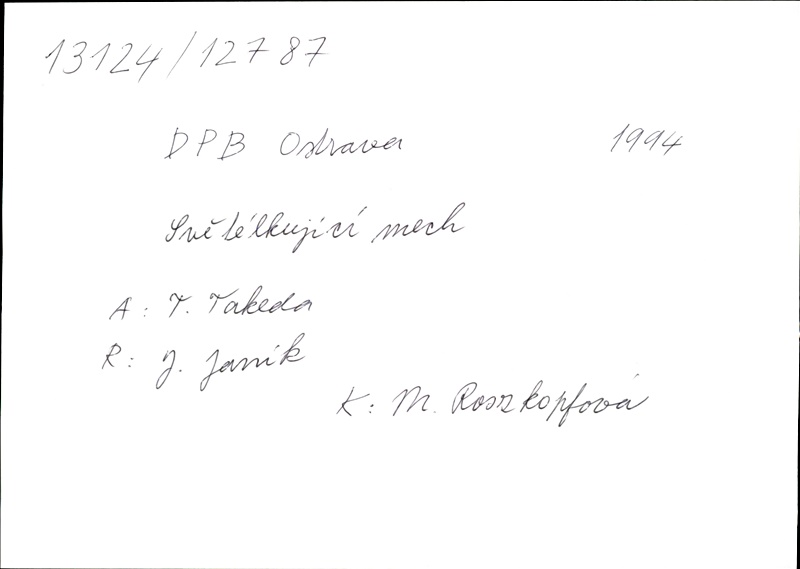 13124/12787
DPB Ostrava 1994
Světélkující mech
A: T. Takeda
R: J. Janík
K: M. Roszkopfová